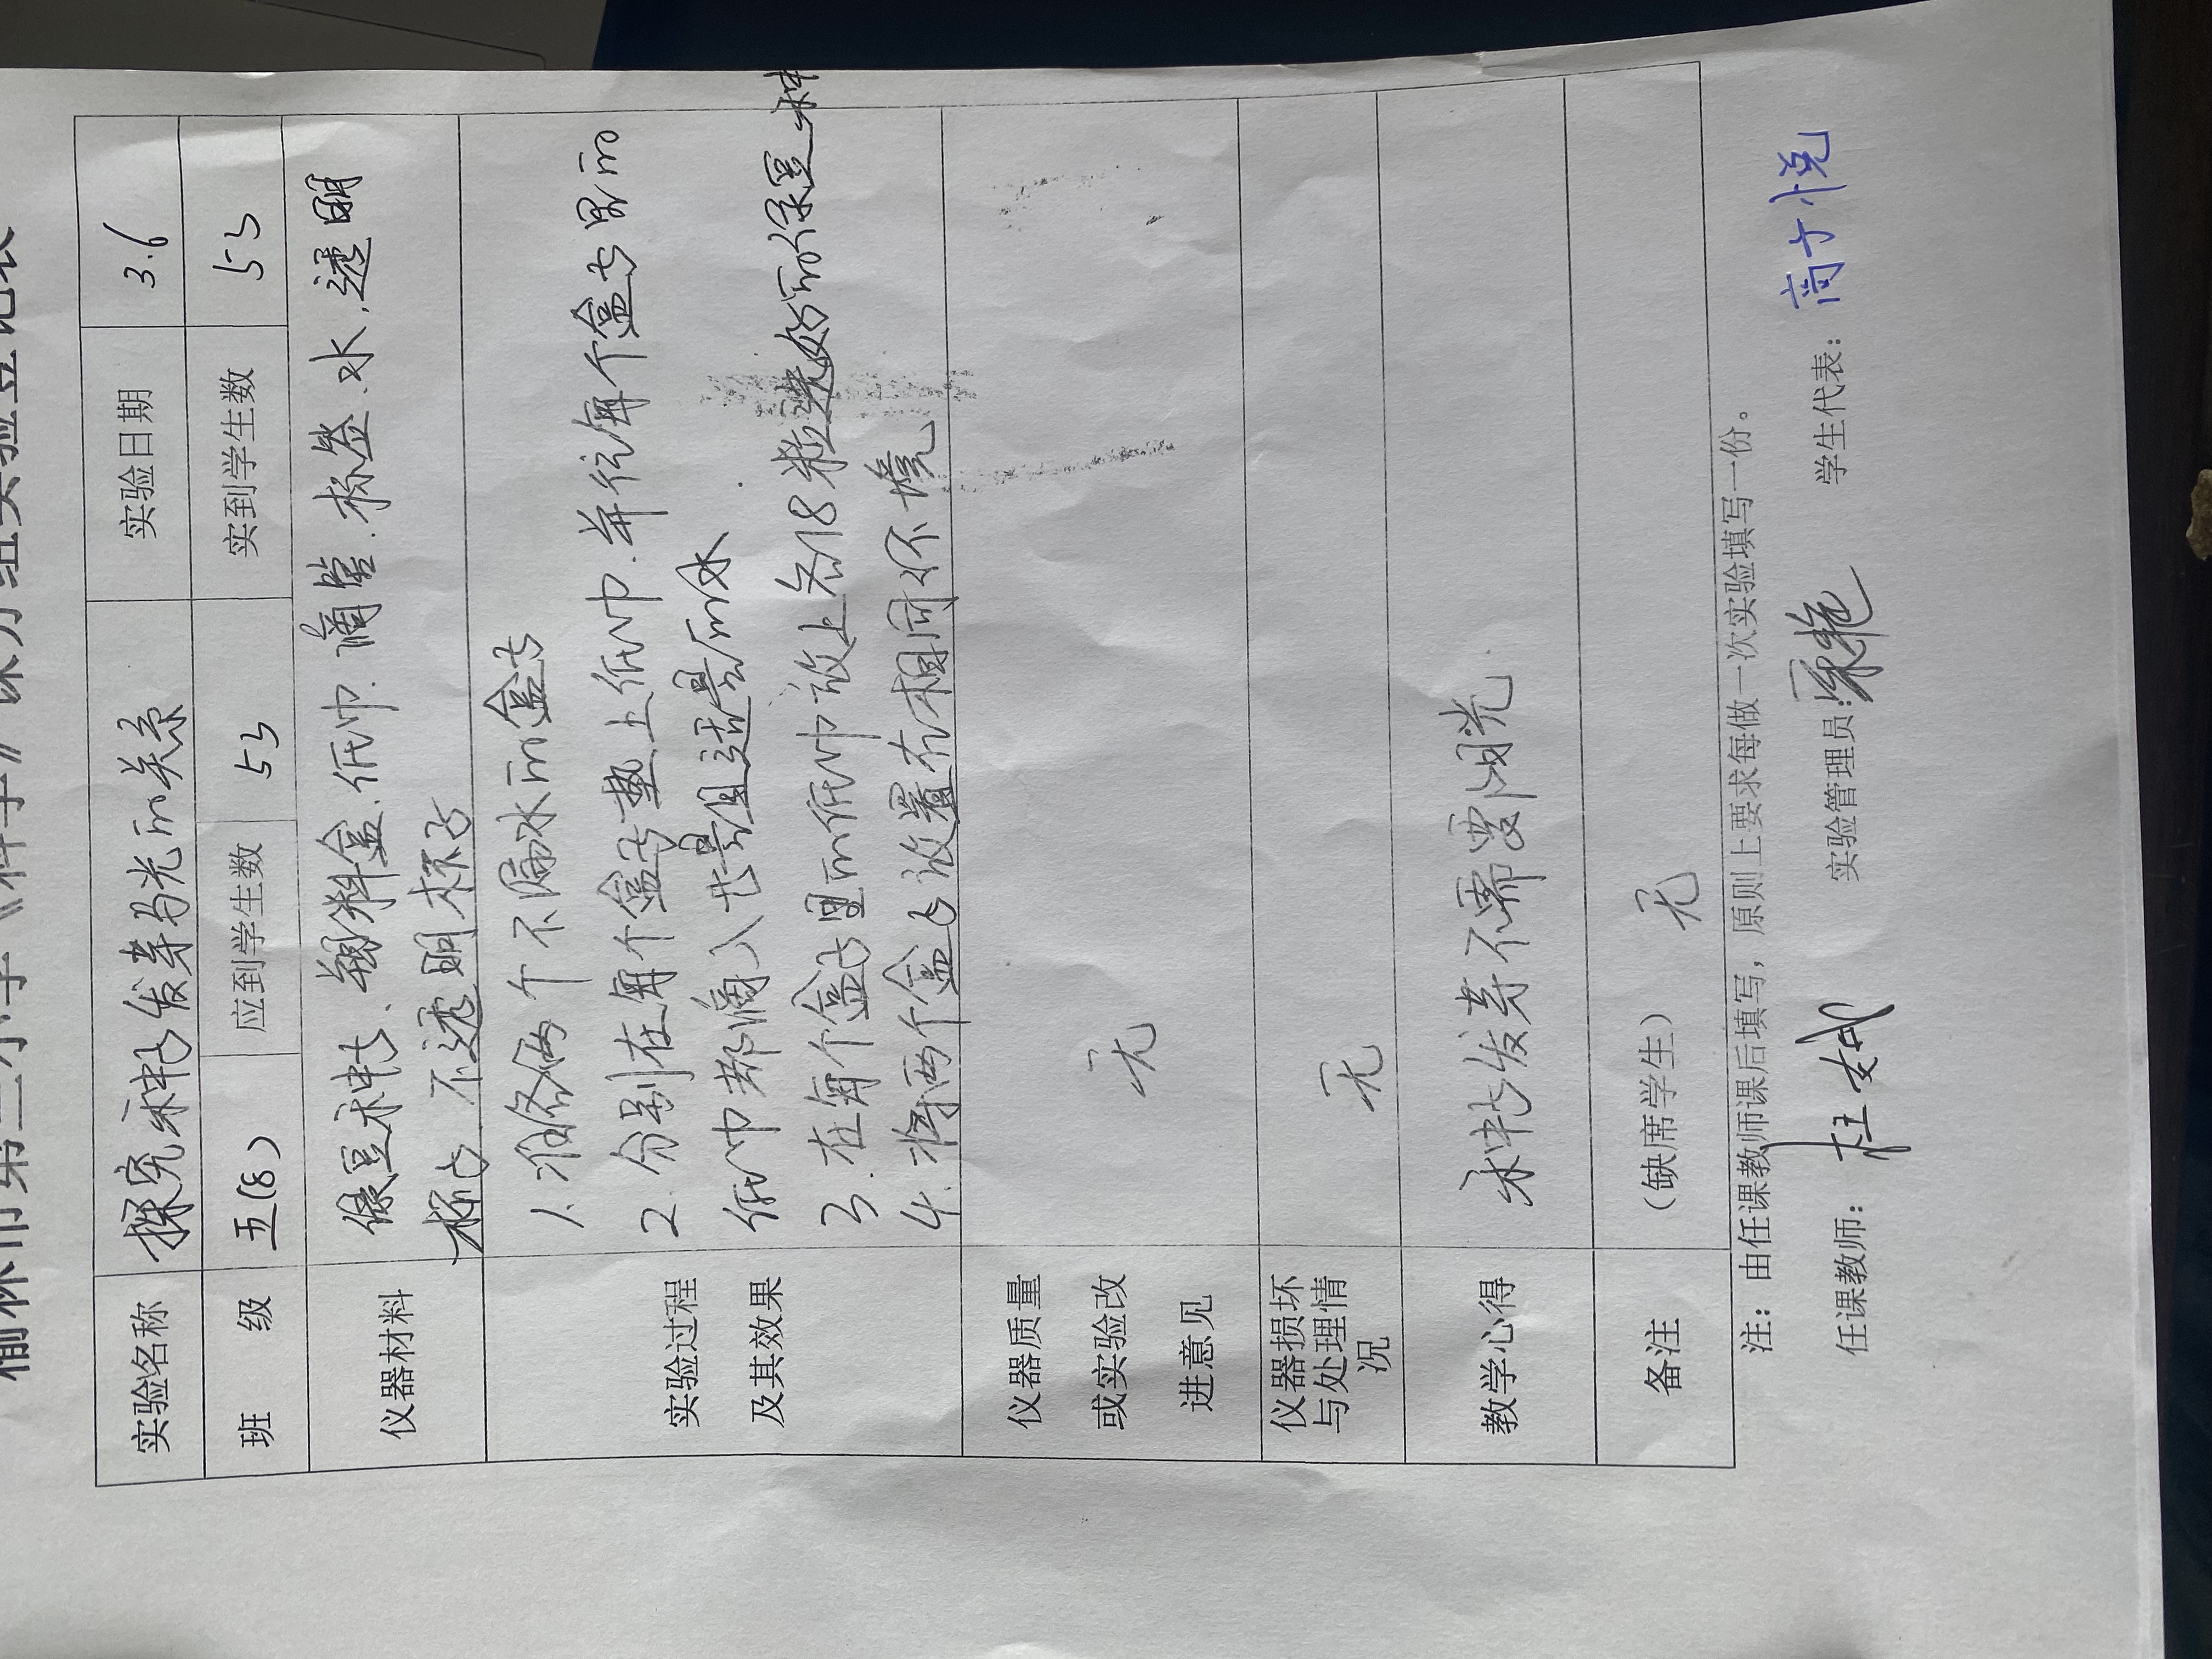 榆林市第三小学《科学》课分组实验登记表
实验名称 探究种子发芽与光的关系 实验日期 3.6
班 级 五(8) 应到学生数 53 实到学生数 53
仪器材料 绿豆种子、塑料盒.纸巾.滴管.标签.水,透明
杯子 不透明杯子
实验过程
及其效果
1.准备两个不漏水的盒子
2.分别在每个盒子垫上纸巾.并往每个盒子里的
纸巾都滴入也是适量的水
3.在每个盒子里的纸巾放上各18粒选好的绿豆种
4.将两个盒子放置在相同环境
仪器质量
或实验改
进意见
无
仪器损坏
与处理情
况
无
教学心得 种子发芽不需要阳光
备注 (缺席学生) 无
注:由任课教师课后填写,原则上要求每做一次实验填写一份。
任课教师: 杜斌 实验管理员: 学生代表: